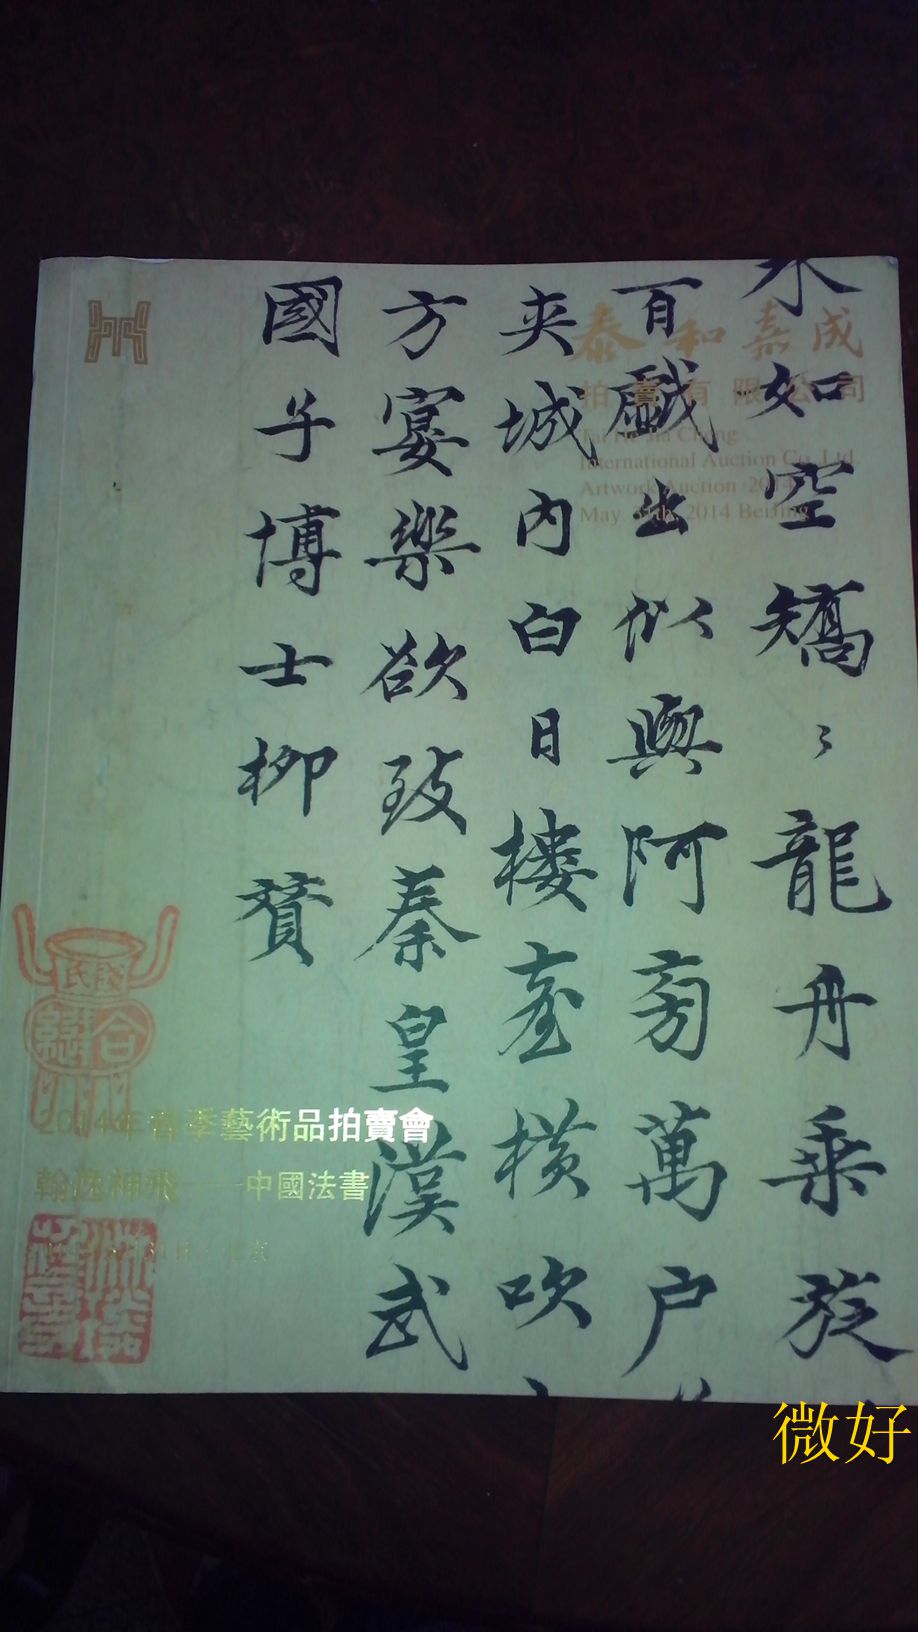 水如空矯〻龍舟乘
百戯出似與阿房萬户
夾城内白日樓臺橫吹
方宴樂欲致秦皇漢武
國子博士柳贇
泰和嘉成
拍賣有限公司
Tai He Jia Cheng
International Auction Co., Ltd.
Artwork Auction 2014
May. 2014 Beijing
2014年春季藝術品拍賣會
翰逸神飛——中國法書
北京
微好